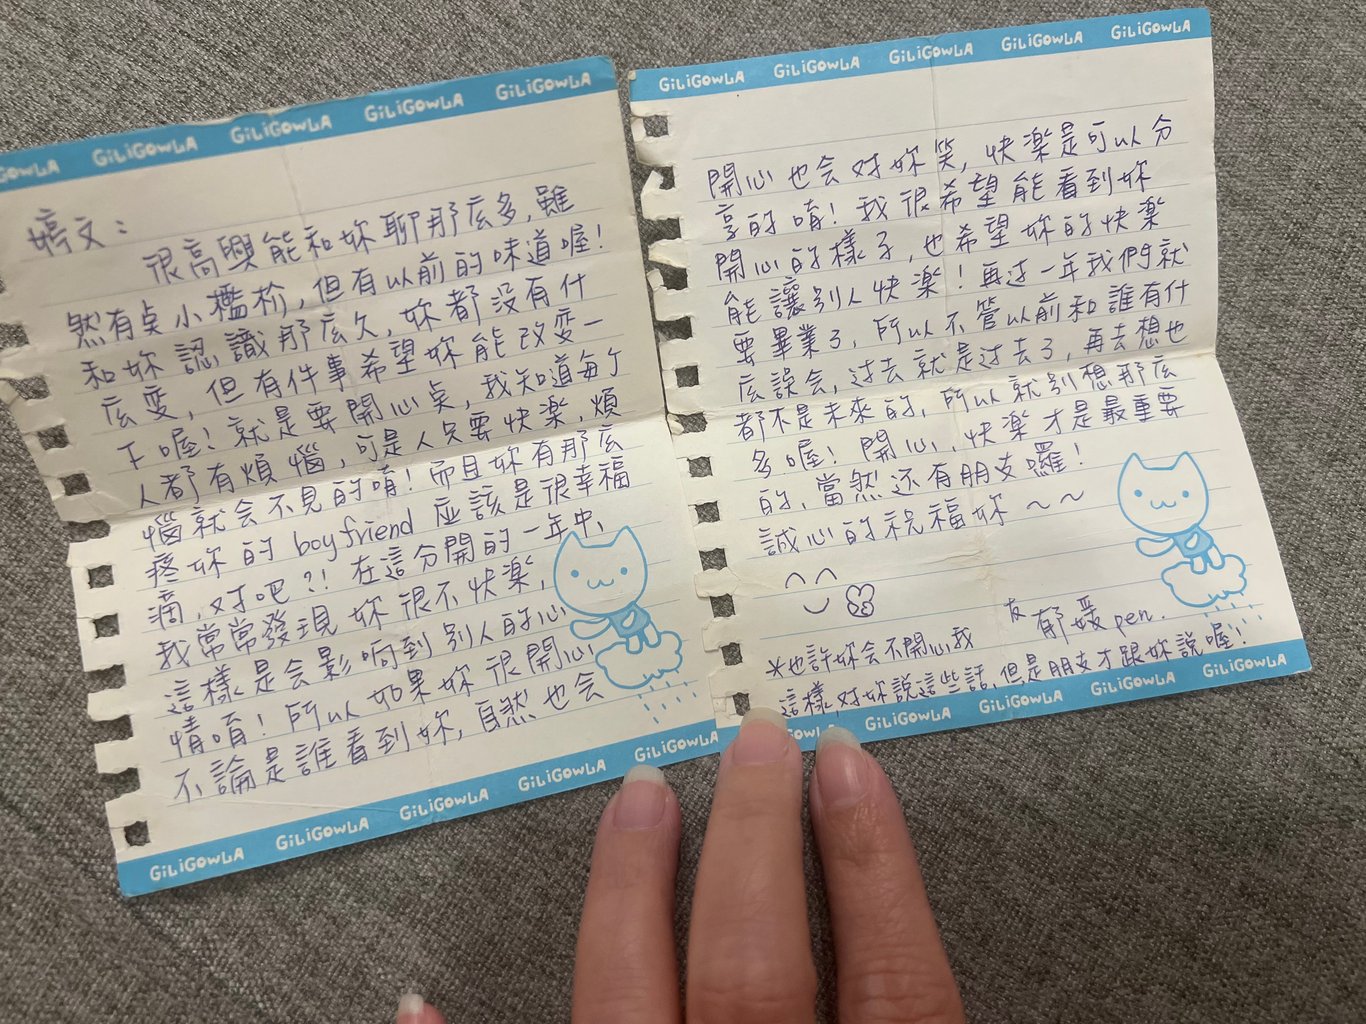 GiLiGOWLA GiLiGOWLA GiLiGOWLA GiLiGOWLA GiLiGOWLA
嬣文：
很高興能和妳聊那庅多，雖
然有桌小尷尬，但有以前的味道喔！
和妳認識那庅久，妳都沒有什
庅变，但有件事希望妳能改变一
下喔！就是要開心桌，我知道每个
人都有煩惱，可是人只要快楽，煩
惱就会不見的唷！而且妳有那庅
疼妳的boyfriend应該是很幸福
滴，对吧?! 在這分開的一年中、
我常常發現妳很不快楽，
這樣是会影响到別人的心
情唷！所以如果妳很開心
不論是誰看到妳，自然也会
GiLiGOWLA GiLiGOWLA GiLiGOWLA GiLiGOWLA GiLiGOWLA
GiLiGOWLA GiLiGOWLA GiLiGOWLA GiLiGOWLA GiLiGOWLA
開心也会对妳笑，快楽是可以分
享的唷！我很希望能看到妳
開心的樣子，也希望妳的快楽
能讓別人快楽！再过一年我們就
要畢業了，所以不管以前和誰有什
庅誤会，过去就是过去了，再去想也
都不是未來的，所以就別想那庅
多喔！開心、快楽才是最重要
的，當然还有朋友囉！
誠心的祝福妳～～
友郁媛pen.
＊也許妳会不開心我
這樣对妳說這些話，但是朋友才跟妳說喔！
GOWLA GiLiGOWLA GiLiGOWLA GiLiGOWLA GiLiGOWLA